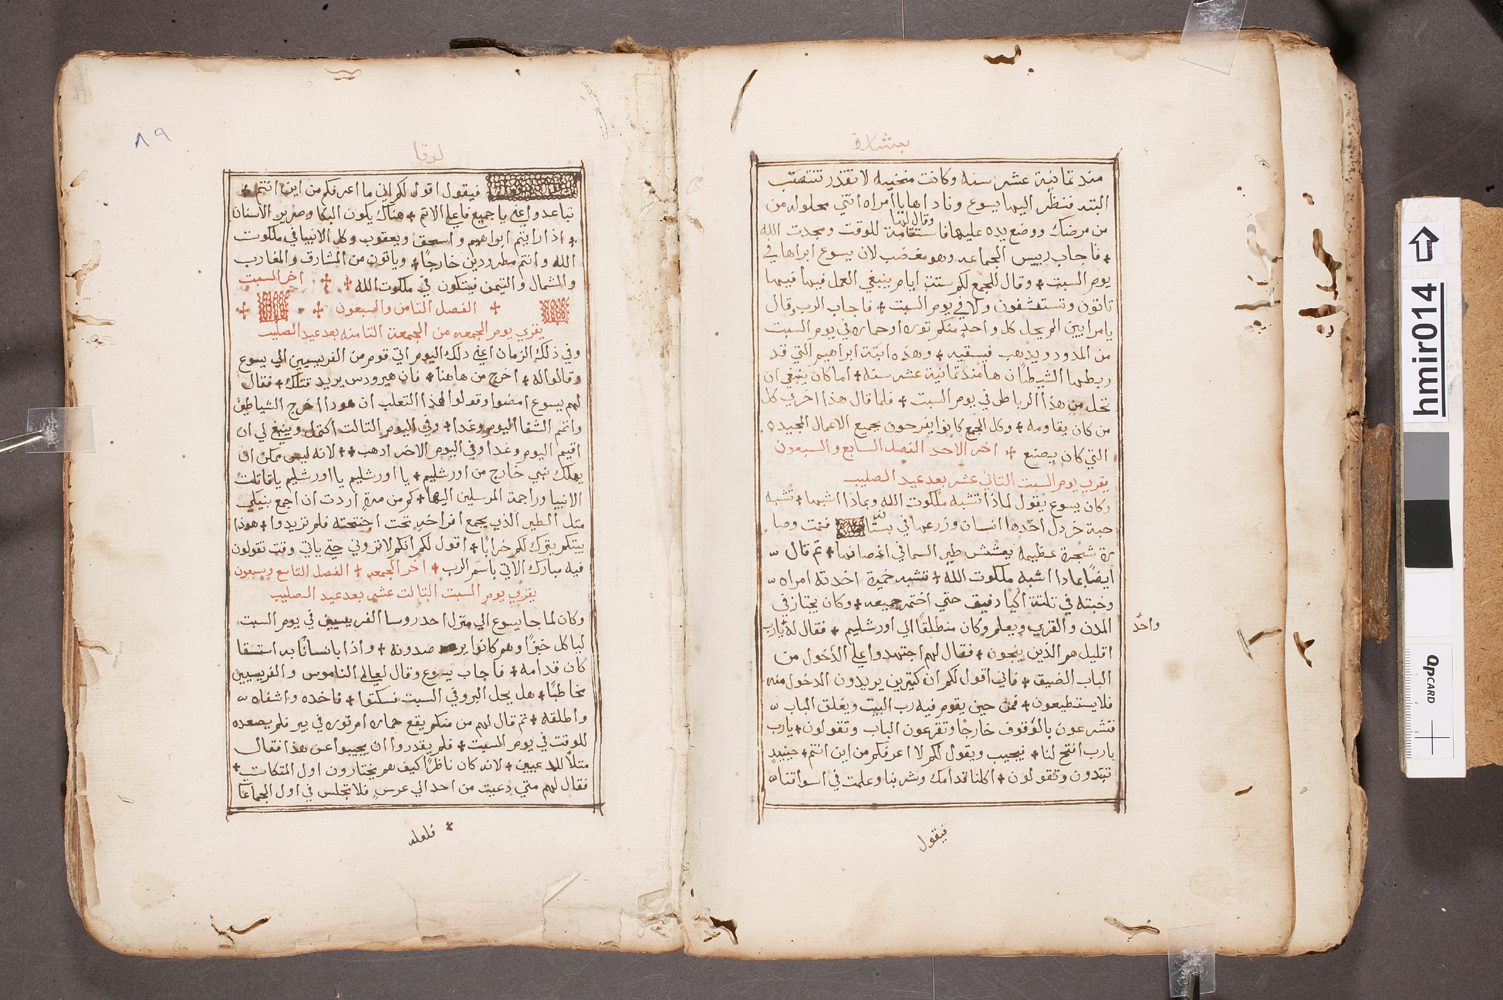 بشارة
منذ ثمانية عشر سنه وكانت منحنيه لا تقدر تنتصب
البته فنظر اليها يسوع وناداها يا امراه انتي محلوله من
وقال لها
من مرضك ووضع يده عليها فاستقامة للوقت ومجدت الله
+ فاجاب رييس الجماعه وهو مغضب لان يسوع ابراها في
يوم السبت + وقال للجمع لكم ستة ايام ينبغي العمل فيها فيها
تاتون وتستشفون ولا في يوم السبت + فاجاب الرب وقال
يا مرايين الم يحل كل واحد منكم توره او حماره في يوم السبت
من المدود ويدهب فيسقيه + وهذه ابنة ابراهيم التي قد
ربطها الشيطان هامند ثمانية عشر سنه + اما كان ينبغي ان
تحل من هذا الرباط في يوم السبت + فلما قال هذا اخزي كل
من كان يقاومه + وكل الجمع كانوا يفرحون بجميع الاعمال المجيده
التي كان يصنع + اخر الاحد الفصل السابع والسبعون
يقري يوم السبت التاني عشر بعد عيد الصليب
وكان يسوع يقول لماذا تشبه ملكوت الله وبماذا اشبهها + تشبه
حبة خردل اخدها انسان وزرعها في بستا فنمت وصا
رة شجرة عظيمه يعشش طير السما في اغصانها + تم قال
ايضا بمادا اشبه ملكوت الله + تشبه خميرة اخدته امراه
وخبته في تلتة اكيا دقيق حتي اختمر جميعه + وكان يجتاز في
المدن والقري ويعلم وكان منطلقا الي اورشليم + فقال له يارب
واحد
اقليل هم الذين ينجون + فقال لهم اجتهدوا علي الدخول من
الباب الضيق + فاني اقول لكم ان كتيرين يريدون الدخول منه
فلا يستطيعون + فمن حين يقوم فيه رب البيت ويغلق الباب
فتشرعون بالوقوف خارجا وتقرعون الباب وتقولون + يارب
يارب افتح لنا + فيجيب ويقول لكم لا اعرفكم من اين انتم + حينيد
تبتدون وتقولون + اكلنا قدامك وشربنا وعلمت في اسواقنا
فيقول
٨٩
لوقا
فيقول اقول لكم اني ما اعرفكم من اين انتم +
تباعدوا عني يا جميع فاعلي الاتم + هناك يكون البكا وصرير الاسنان
+ اذا رايتم ابراهيم واسحق ويعقوب وكل الانبيا في ملكوت
الله وانتم مطرودين خارجا + وياتون من المشارق والمغارب
والشمال والتيمن فيتكون في ملكوت الله + + اخر السبت
+ الفصل التامن والسبعون + +
يقري يوم الجمعه من الجمعة التامنه بعد عيد الصليب
وفي ذلك الزمان اعني دلك اليوم اتي قوم من الفريسيين الي يسوع
وقالوا له + اخرج من هاهنا + فان هيرودس يريد قتلك + فقال
لهم يسوع امضوا وقولوا لهذا التعلب ان هودا اخرج الشياطين
واتمم الشفا اليوم وغدا + وفي اليوم التالت اكمل وينبغي لي ان
اقيم اليوم وغدا وفي اليوم الاخر ادهب + + لانه ليس يمكن ان
يهلك نبي خارج من اورشليم + يا اورشليم يا اورشليم يا قاتلت
الانبيا وراجمة المرسلين اليها + كم من مرة اردت ان اجمع بنيكي
متل الطير الذي يجمع افراخه تحت اجنحته فلم تريدوا + هودا
بيتكم يترك لكم خرابا + اقول لكم انكم لا تروني حتي ياتي وقت تقولون
فيه مبارك الاتي باسم الرب + اخر الجمعه + الفصل التاسع وسبعون
يقري يوم السبت التالت عشر بعد عيد الصليب
وكان لما جا يسوع الي منزل احد روسا الفريسيين في يوم السبت
لياكل خبزا وهم كانوا يرصدونه + واذا بانسانا به استسقا
كان قدامه + فاجاب يسوع وقال لعالمي الناموس والفريسيين
مخاطبا + هل يحل البرو في السبت فسكتوا + فاخده واشفاه
واطلقه + تم قال لهم من منكم يقع حماره او توره في بير فلم يصعده
للوقت في يوم السبت + فلم يقدروا ان يجيبوا عن هذا فقال
متلا للمدعيين + لانه كان ناظرا كيف هم يختارون اول المتكات +
فقال لهم متي دعيت من احد الي عرس فلا تجلس في اول الجماعا
+ فلعله
hmir014
QPCARD